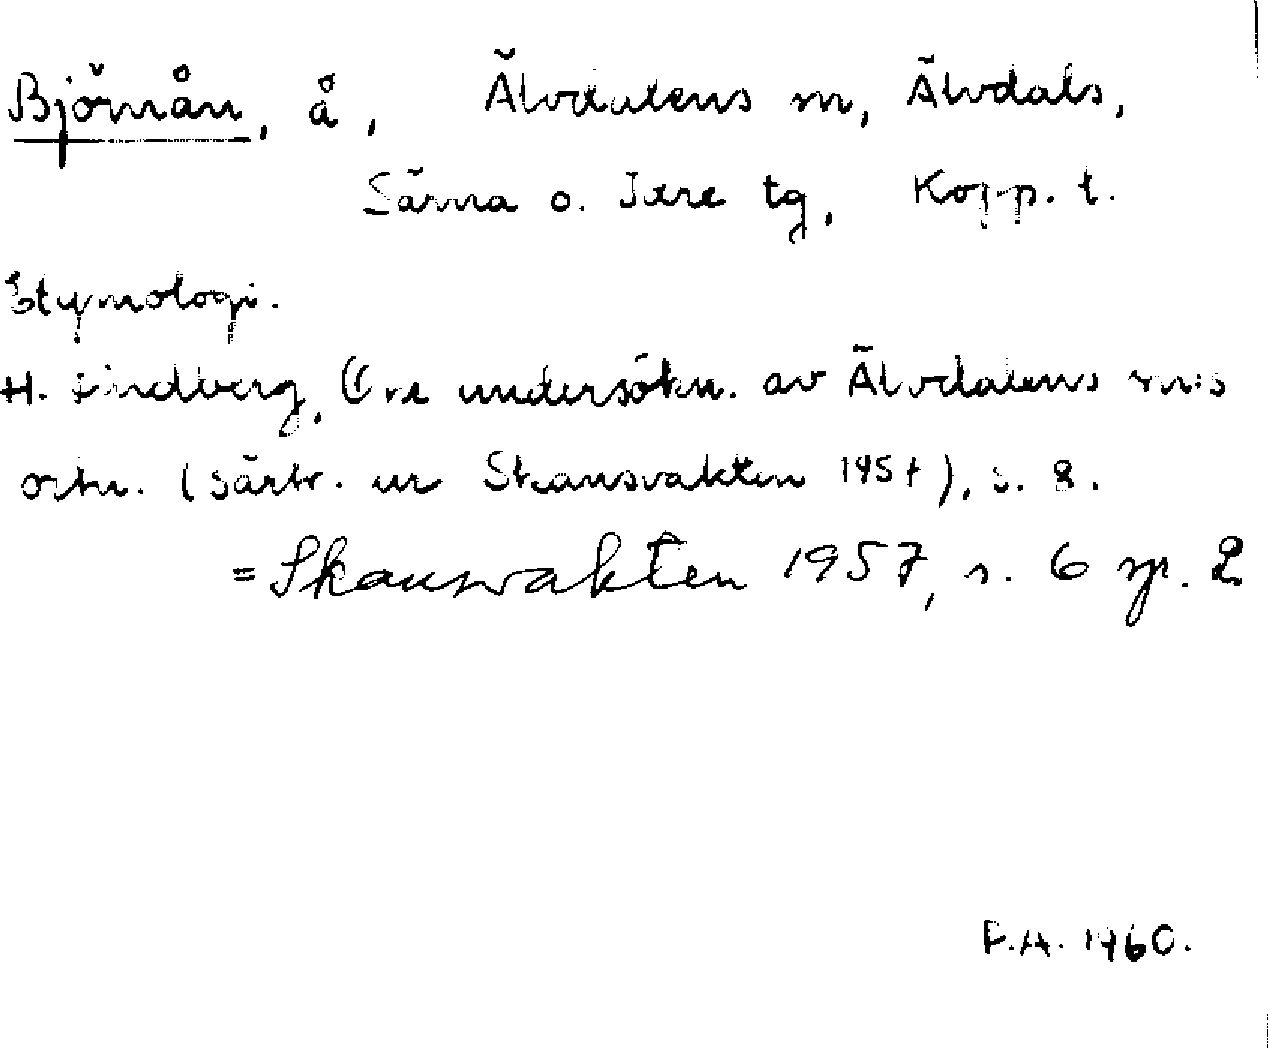 Björnån, å, Älvdalens sn, Älvdals,
Särna o. Idre tg, Kopp. l.
Etymologi.
H. Lindberg, undersökn. av Älvdalens sns
ortn. (särtr. ur Skansvakten 1957), s. 8.
= Skansvakten 1957, s. 6 sp. 2
F.A. 1960.